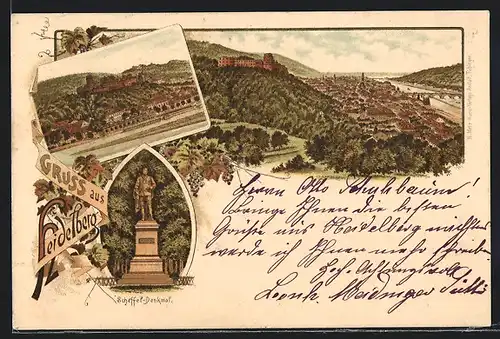 GRUSS aus
Heidelberg
Scheffel-Denkmal.
Herrn Otto Schuhbaum!
Bringe Ihnen die besten
Grüße aus Heidelberg nächstens
werde ich Ihnen mehr schreiben
Achtungsvoll
Leonh. Meidinger